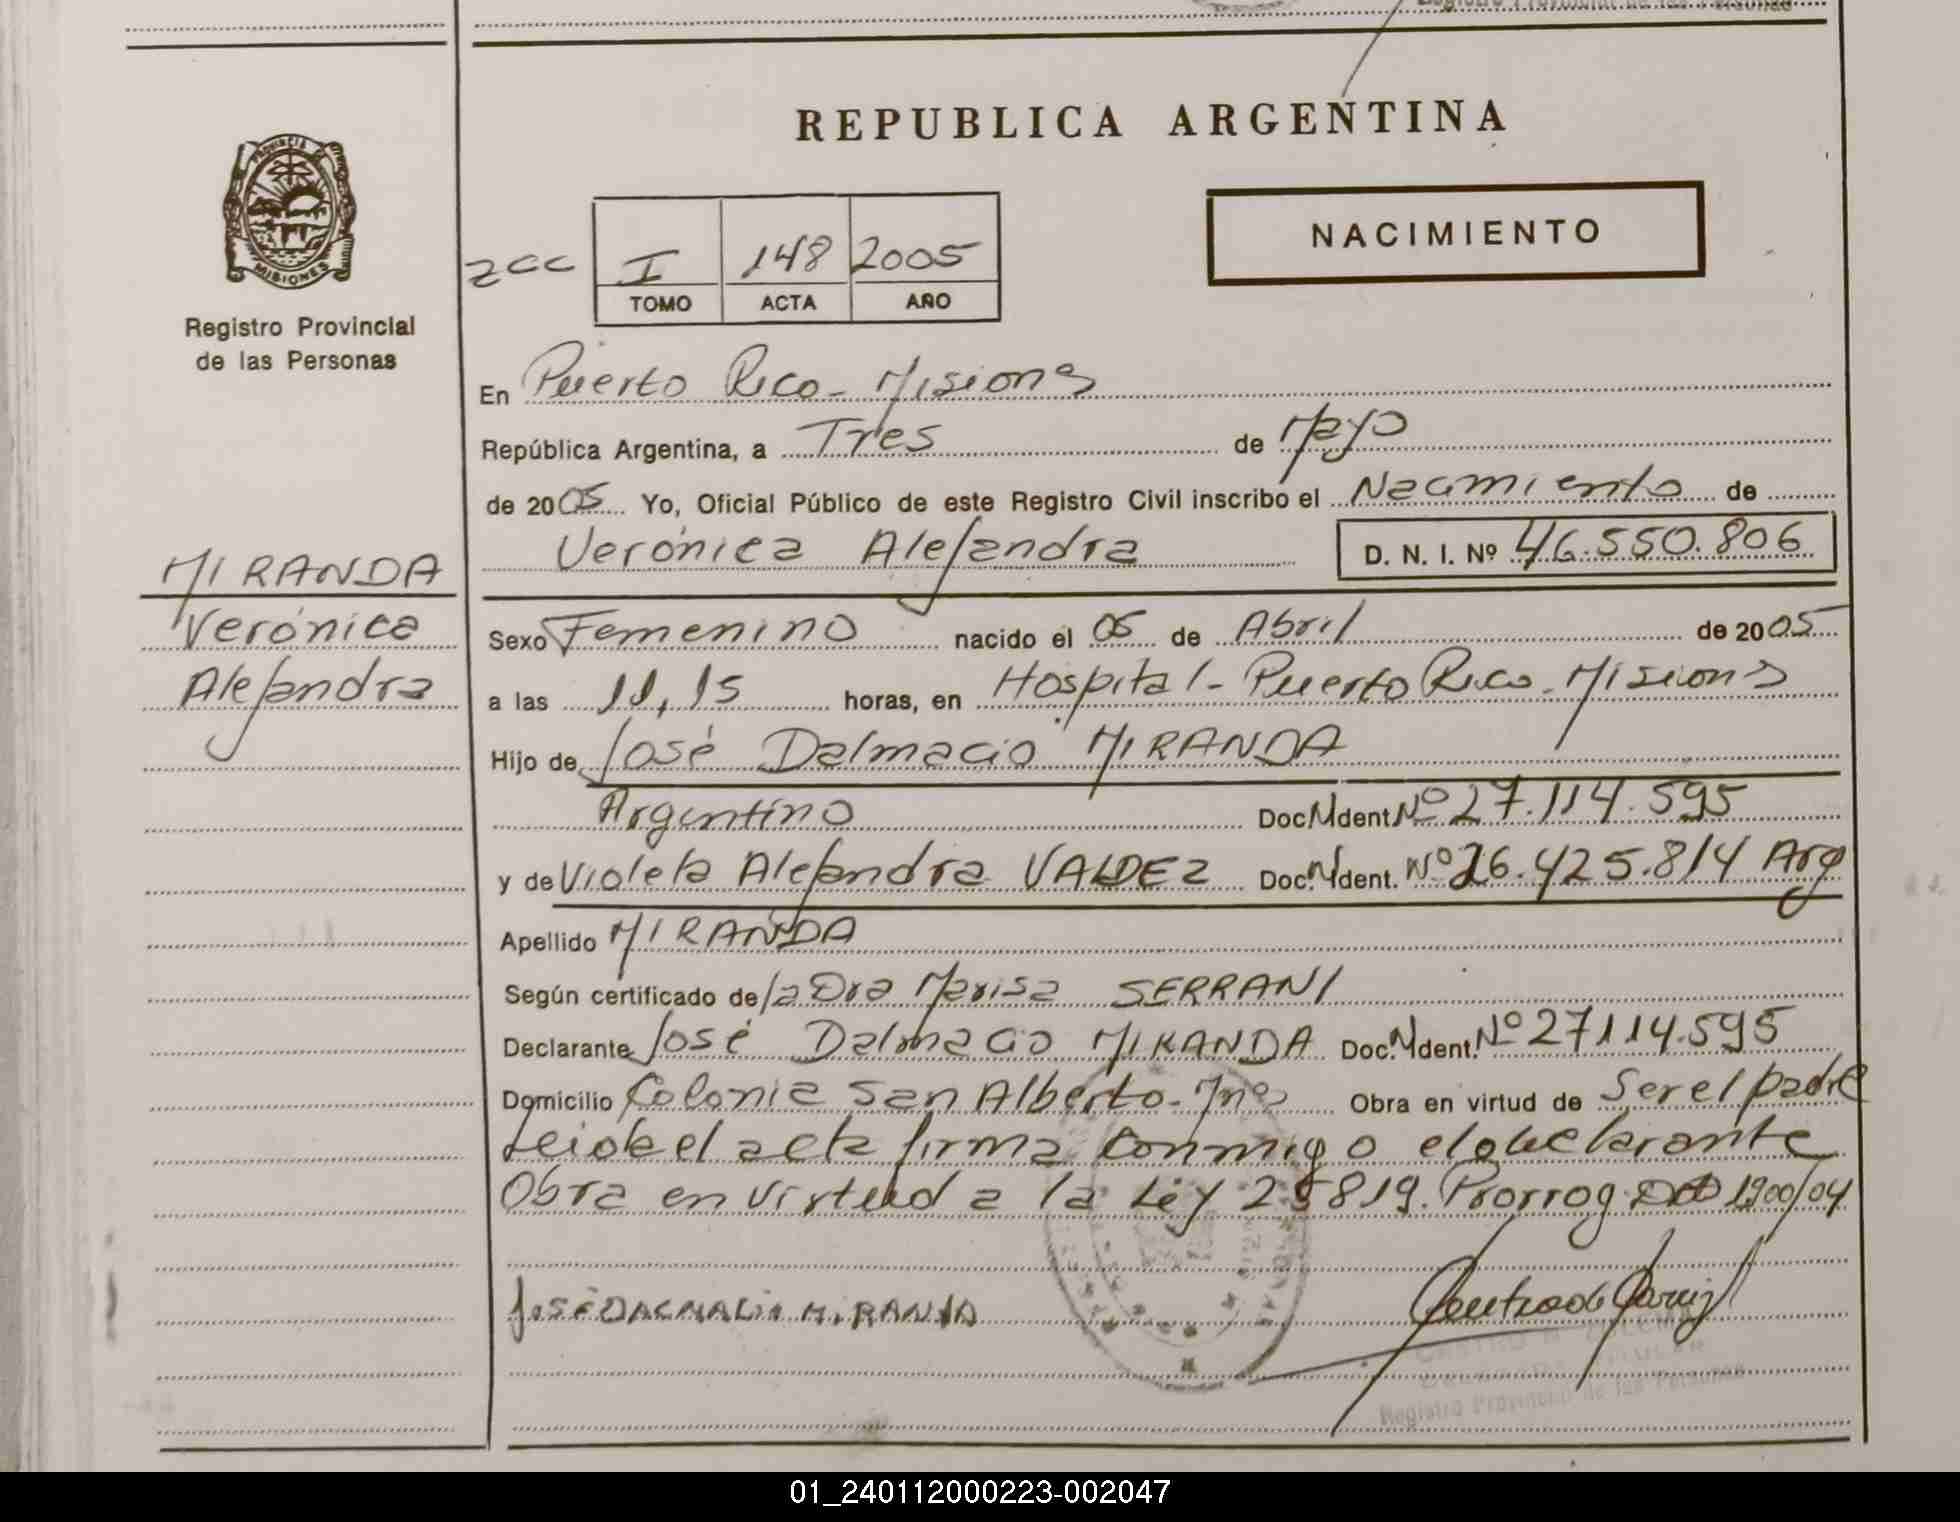 REPUBLICA ARGENTINA
PROVINCIA DE
MISIONES
Registro Provincial
de las Personas
NACIMIENTO
I 148 2005
TOMO ACTA AÑO
En Puerto Rico - Misiones
República Argentina, a Tres de Mayo
de 2005 Yo, Oficial Público de este Registro Civil inscribo el Nacimiento de
Verónica Alejandra D. N. I. Nº 46.550.806
MIRANDA
Verónica
Alejandra
Sexo Femenino nacido el 05 de Abril de 2005
a las 11,15 horas, en Hospital - Puerto Rico - Misiones
Hijo de José Dalmacio MIRANDA
Argentino Doc. N Ident. Nº 27.114.595
y de Violeta Alejandra VALDEZ Doc. N Ident. Nº 26.425.814 Arg
Apellido MIRANDA
Según certificado de la Dra Marisa SERRANI
Declarante José Dalmacio MIRANDA Doc. N Ident. Nº 27114.595
Domicilio Colonia San Alberto - Mnes Obra en virtud de Ser el padre
Leida el acta firma conmigo el declarante
Obra en virtud a la Ley 25819. Prorrog 1900/04
JOSÉ DALMACIO MIRANDA
Registro Provincial de las Personas
01_240112000223-002047